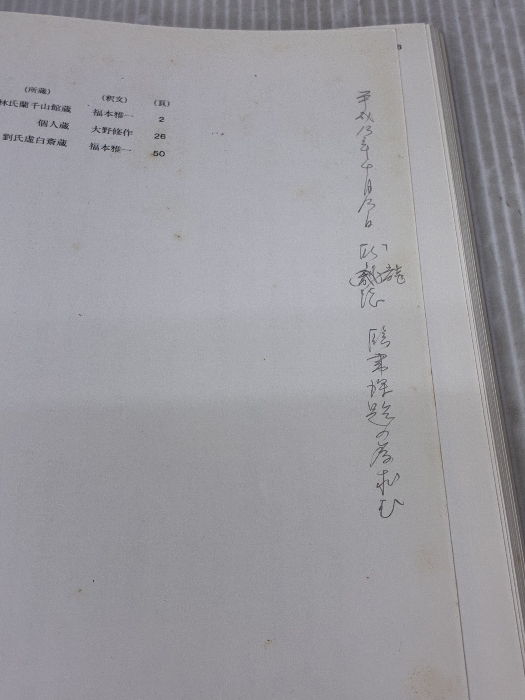 (所蔵) (釈文) (頁)
林氏蘭千山館蔵 福本雅一 2
個人蔵 大野修作 26
劉氏虚白斎蔵 福本雅一 50
平成13年十月13日 臨書課題の為求む